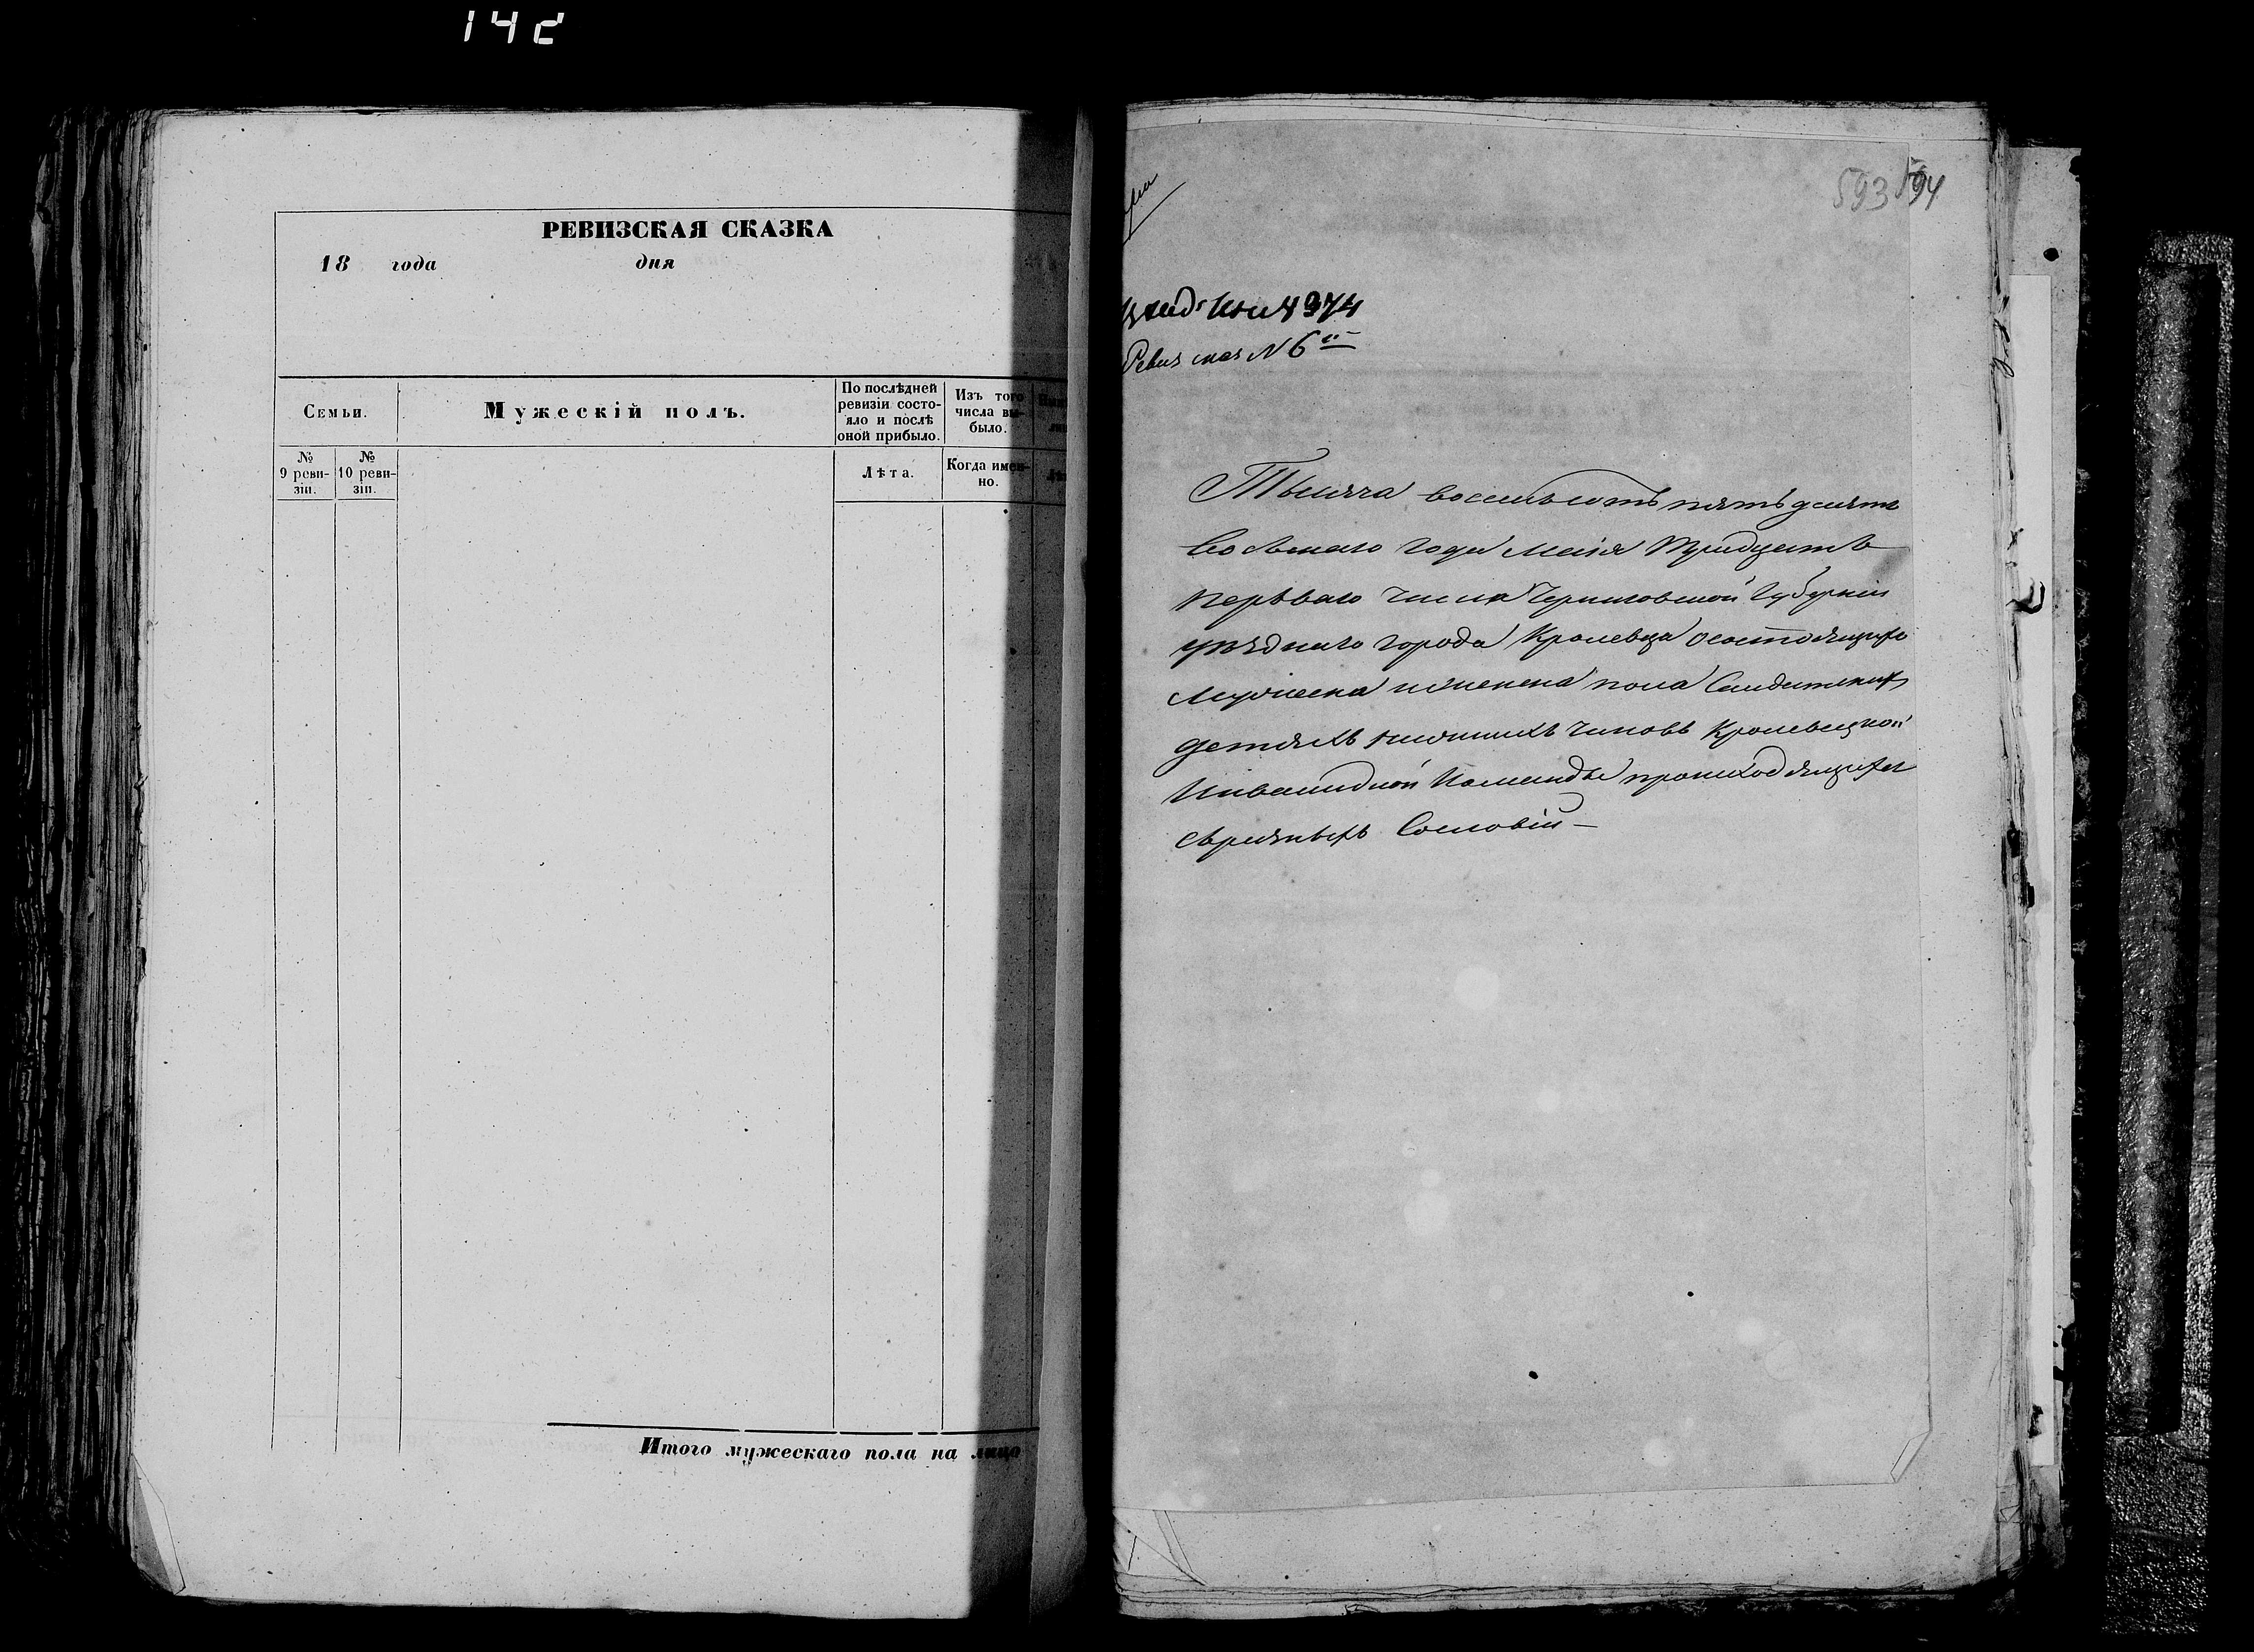 142
РЕВИЗСКАЯ СКАЗКА
18 года дня
Семьи.
Мужескій полъ.
По послѣдней ревизіи состо-
яло и послѣ
оной прибыло.
Изъ того
числа вы-
было.
№
9 реви-
зіи.
№
10 реви-
зіи.
Лѣта.
Когда имен-
но.
Итого мужескаго пола на лицо
593 594
4974
Ревиз сказ N 6й
Тысяча восемьсотъ пятьдесятъ
восьмаго года Маія тридцать
перьваго числа Черниговской Губерніи
уѣзднаго города Кролевца о состоящихъ
мужеска и женска пола Солдатскихъ
детяхъ нижнихъ чиновъ Кролевецкой
Инвалидной Команды происходящихъ
съ разныхъ Сословій —